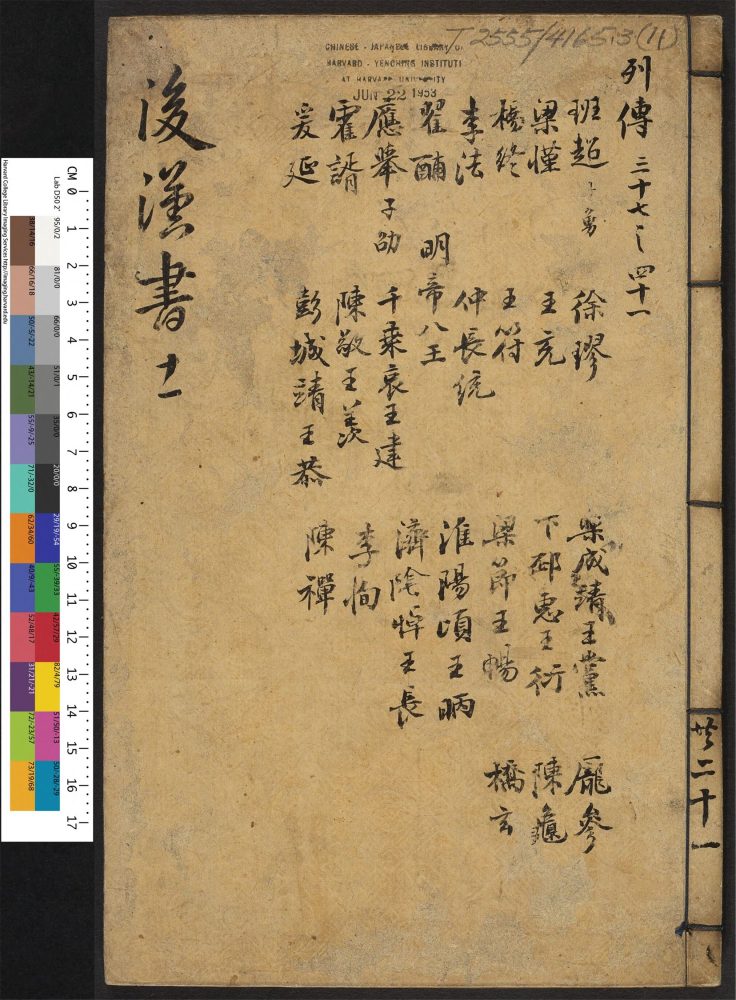 T 2555/4165.3 (11)
CHINESE - JAPANESE LIBRARY OF
HARVARD - YENCHING INSTITUTE
AT HARVARD UNIVERSITY
JUN 22 1953
列傳 三十七之四十一
班超 子勇
梁慬
楊終
李法
翟酺
應奉 子劭
霍諝
爰延
徐璆
王充
王符
仲長統
明帝八王
千乘哀王建
陳敬王羨
彭城靖王恭
樂成靖王黨
下邳惠王衍
梁節王暢
淮陽頃王昞
濟陰悼王長
李恂
陳禪
龐參
陳龜
橋玄
後漢書 十一
共二十一
CM 0 1 2 3 4 5 6 7 8 9 10 11 12 13 14 15 16 17
Harvard College Library Imaging Services http://imaging.harvard.edu